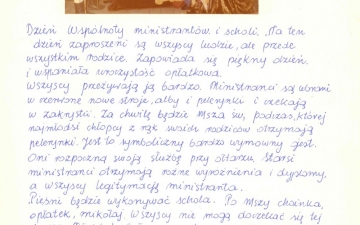 Dzień Wspólnoty ministrantów i scholi. Na ten
dzień zaproszeni są wszyscy ludzie, ale przede
wszystkim rodzice. Zapowiada się piękny dzień
i wspaniała uroczystość opłatkowa.
Wszyscy przeżywają ją bardzo. Ministranci są ubrani
w czerwone nowe stroje, alby i pelerynki i czekają
w zakrystii. Za chwilę będzie Msza św. podczas, której
najmłodsi chłopcy z rąk swoich rodziców otrzymają
pelerynki. Jest to symboliczny bardzo wymowny gest.
Oni rozpoczną swoją służbę przy ołtarzu. Starsi
ministranci otrzymają różne wyróżnienia i dyplomy,
a wszyscy legitymację ministranta.
Pieśni będzie wykonywać schola. Po Mszy choinka,
opłatek, mikołaj. Wszyscy nie mogą doczekać się tej